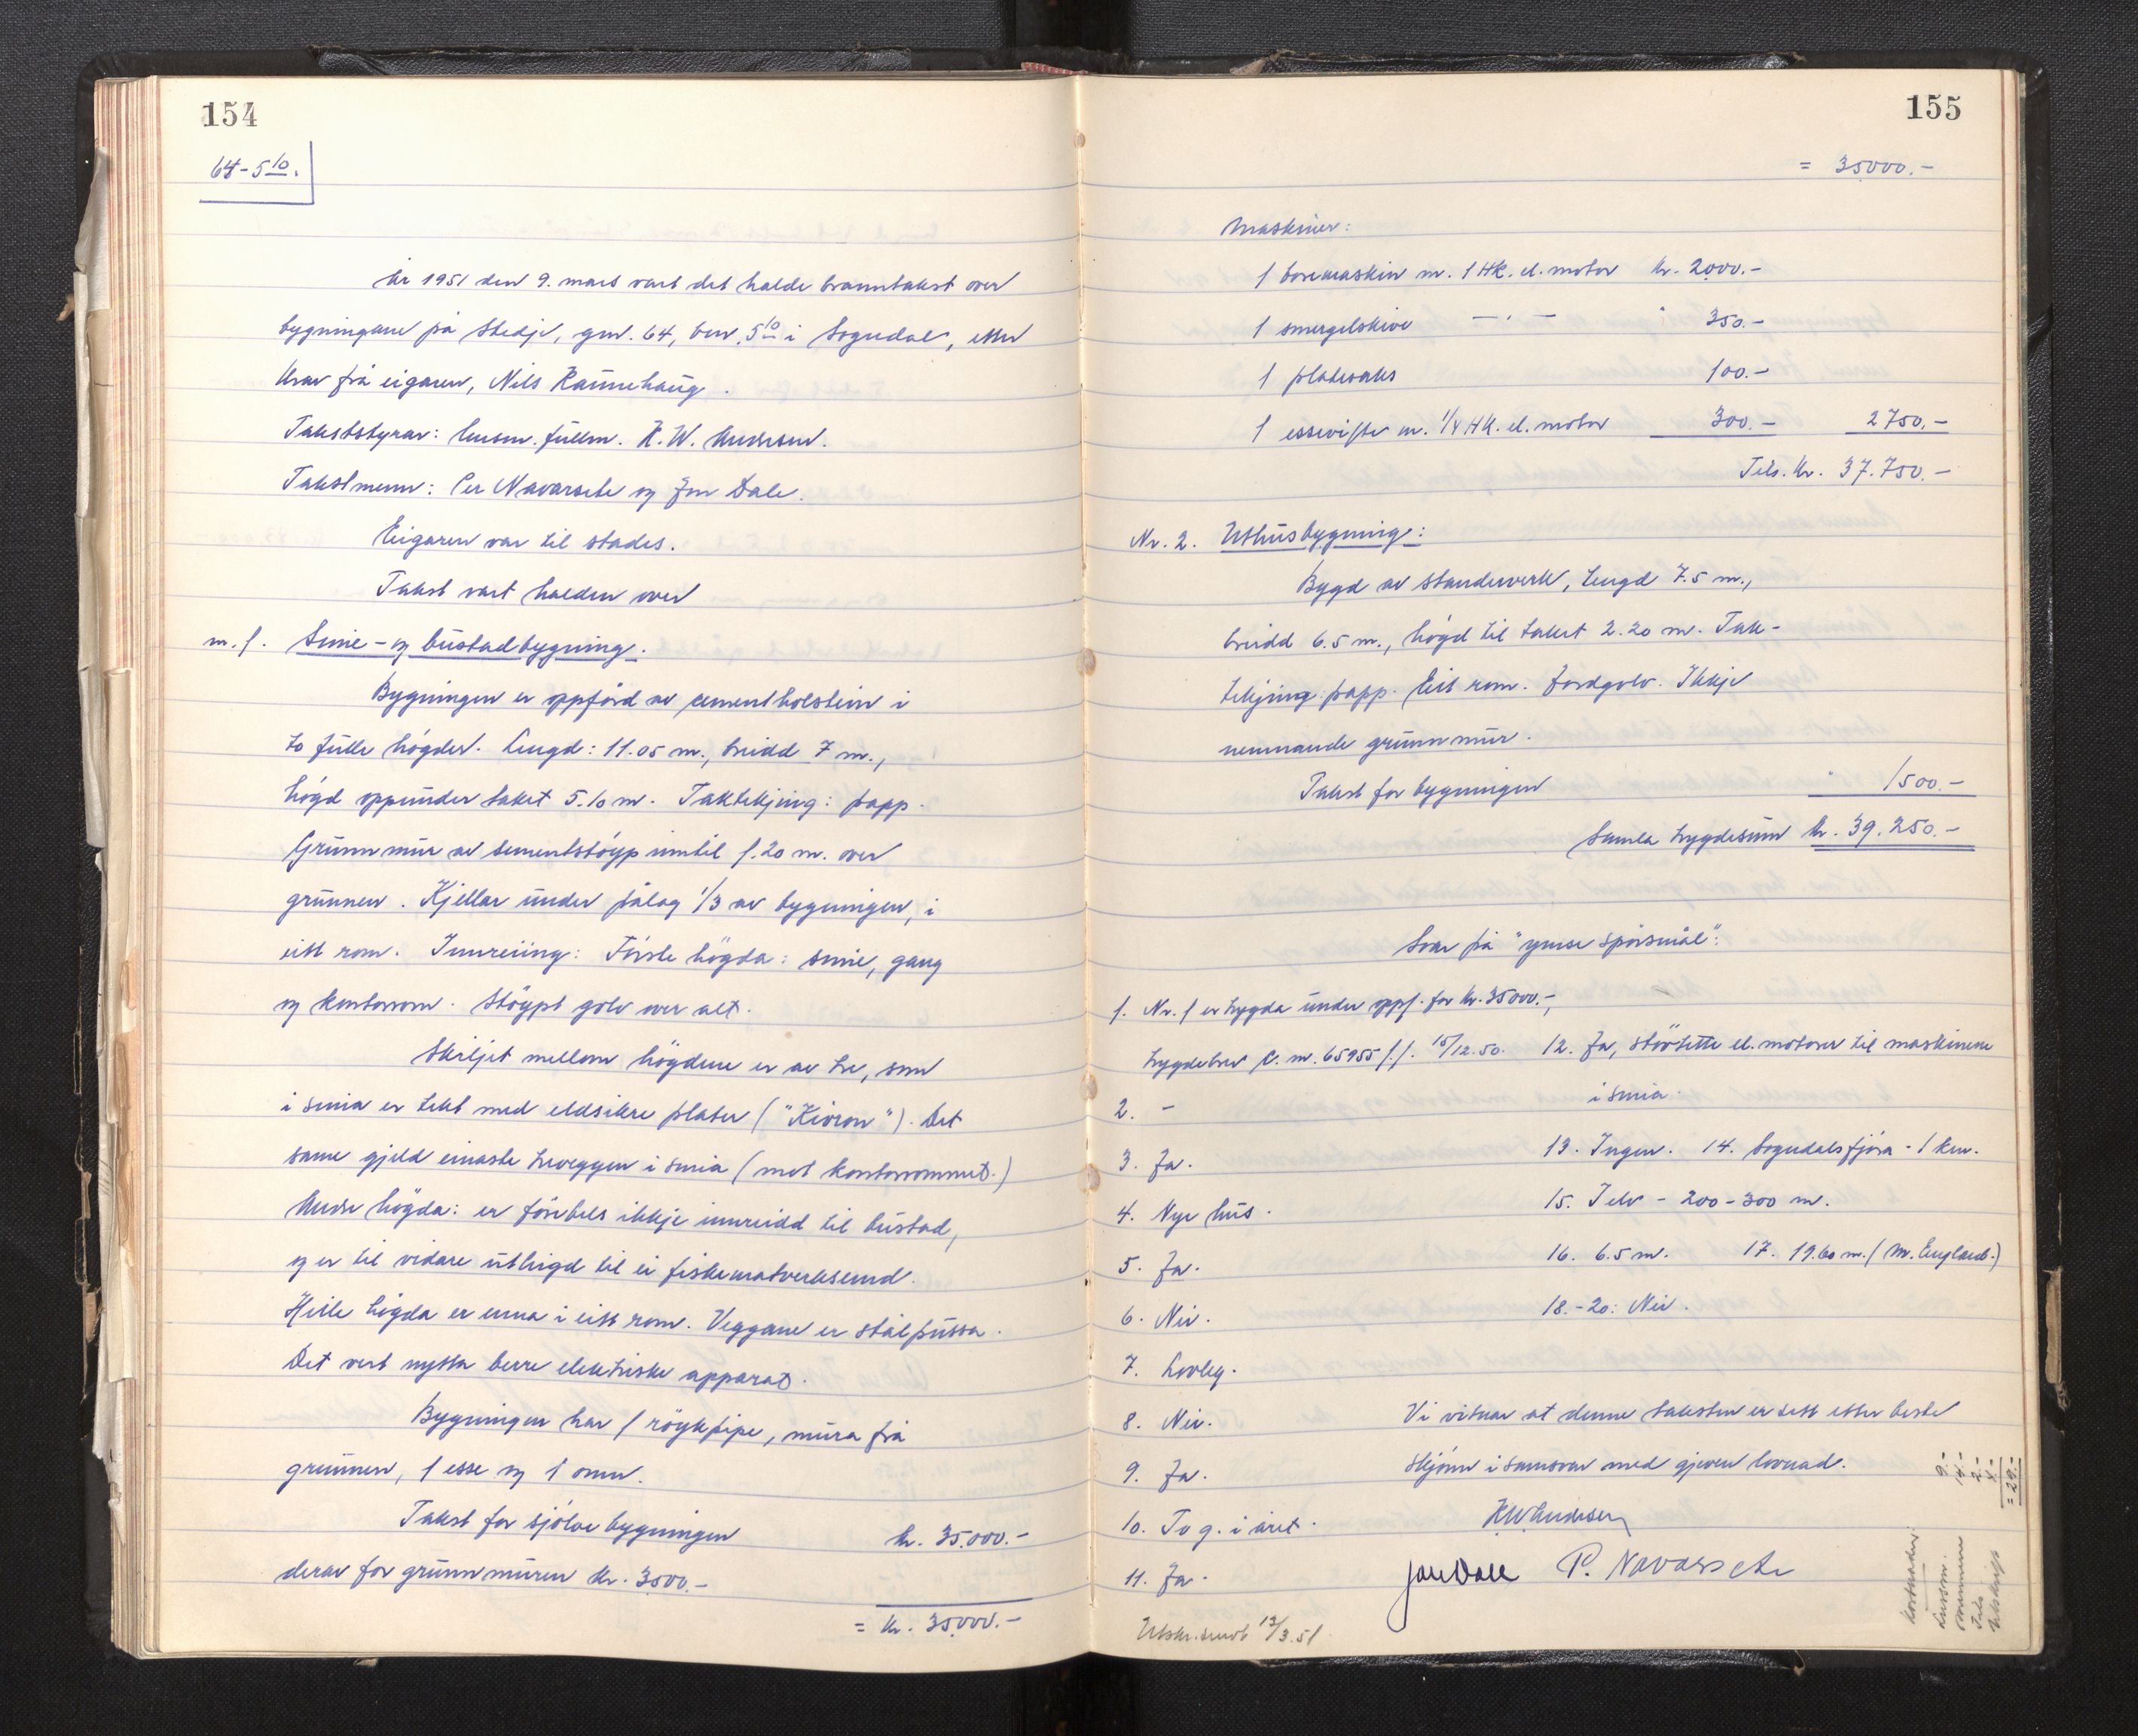 154
64-5 10.
År 1951 den 9. mars vart det halde branntakst over
bygningane på Stedje, gnr. 64, bnr. 5 10 i Sogndal, etter
krav frå eigaren, Nils Rannehaug.
Takststyrar: lensm. fullm. K. W. Andersen.
Takstmenn: Per Navarsete og Jon Dale.
Eigaren var til stades.
Takst vart halden over
nr. 1. Smie- og bustadbygning.
Bygningen er oppförd av cementholstein i
to fulle högder. Lengd: 11.05 m., breidd 7 m.,
högd oppunder taket 5.10 m. Taktekjing: papp.
Grunnmur av sementstöyp inntil 1.20 m. over
grunnen. Kjellar under pålag 1/3 av bygningen, i
eitt rom. Innreiing: Förste högda: smie, gang
og kontorrom. Stöypt golv over alt.
Skiljet mellom högdene er av tre, som
i smia er tekt med eldsikre plater ("Kivron"). Det
same gjeld einaste treveggen i smia (mot kontorrommet.)
Andre högda: er förebels ikkje innreidd til bustad,
og er til vidare utleigd til ei fiskematverksemd.
Heile högda er enno i eitt rom. Veggane er stålpussa.
Det vert nytta berre elektriske apparat.
Bygningen har 1 röykpipe, mura frå
grunnen, 1 esse og 1 omn.
Takst for sjölve bygningen kr. 35.000.-
derav for grunnmuren kr. 3500.-
= kr. 35000.-
155
= 35000.-
Maskiner:
1 boremaskin m. 1 HK. el. motor kr. 2000.-
1 smergelskive - " - " 350.-
1 platesaks 100.-
1 essevifte m. 1/4 HK. el. motor 300.- 2750.-
Tils. kr. 37.750.-
Nr. 2. Uthusbygning:
Bygd av standerverk, lengd 7.5 m.,
breidd 6.5 m., högd til taket 2.20 m. Tak-
tekjing papp. Eit rom. Jordgolv. Ikkje
nemnande grunnmur.
Takst for bygningen " 1500.-
Samla trygdesum kr. 39.250.-
Svar på "ymse spörsmål":
1. Nr. 1 er trygda under oppf. for kr. 35000.-,
trygdebrev C. nr. 65955 f.f. 15/12.50.
2. -
3. Ja.
4. Nye hus.
5. Ja.
6. Nei.
7. Lovleg.
8. Nei.
9. Ja.
10. To g. i året.
11. Ja.
12. Ja, stövtette el. motorer til maskinene
i smia.
13. Ingen. 14. Sogndalsfjöra - 1 km.
15. Elv - 200-300 m.
16. 6.5 m. 17. 19.60 m. (M. Englard.)
18.-20: Nei.
Vi vitnar at denne taksten er sett etter beste
skjönn i samsvar med gjeven lovnad.
KWAndersen
Jon Dale P. Navarsete
Utskr. sendt 12/3.51.
Kostnader:
Lensm. 9.-
Mennene 14.-
Tils 2.-
Utskrift 4.-
= 29.-